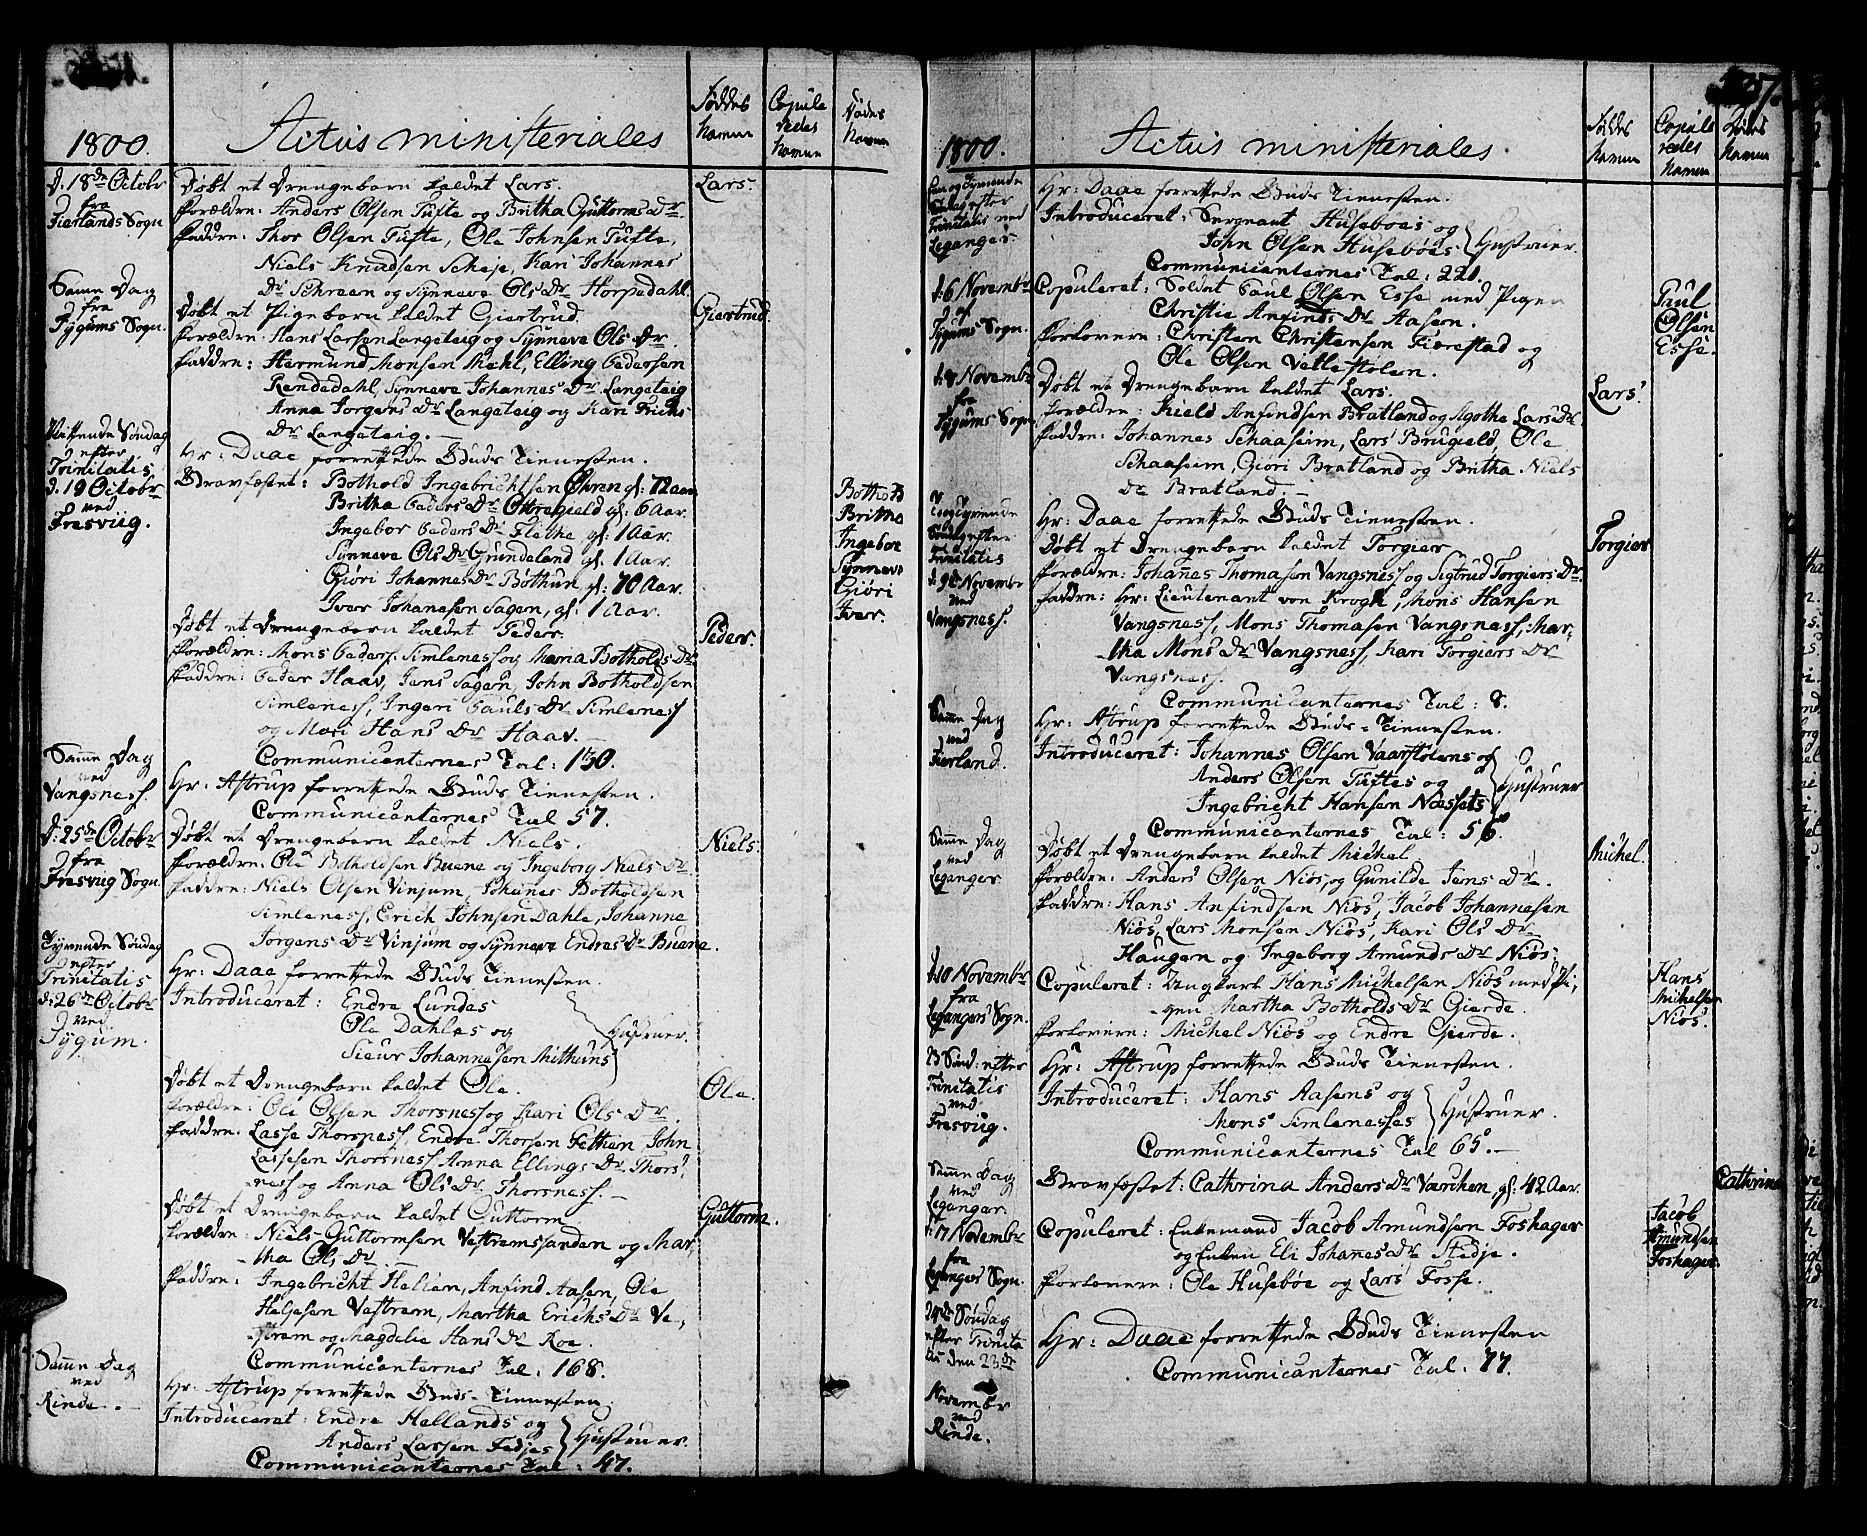 1800.
Actus ministeriales
Føddes
Navne
Copule
redes
Navne
Dødes
Navne
d. 18de Octobr
fra
Fierlands Sogn
Døbt et Drengebarn kaldet Lars.
Lars.
Forældre: Anders Olsen Tufte og Britha Guttorms Dr
Faddre: Thor Olsen Tufte, Ole Johnsen Tufte,
Niels Knudsen Scheje, Kari Johannes
Dr Schreen og Synneve Ols Dr Horpedahl
Samme Dag
fra
Tygums Sogn.
Døbt et Pigebarn kaldet Giertrud.
Giertrud.
Forældre: Hans Larsen Langeteig og Synneve Ols Dr.
Faddre: Hermund Monsen Mehl, Elling Pedersen
Rendedahl, Synneve Johannes Dr Langeteig
Anna Jorgens Dr Langeteig og Kari Erichs
Dr Langeteig.
Nittende Søndag
efter
Trinitatis
d. 19 Octobr
ved
Fresviig.
Hr: Daae forrettede Guds Tienesten.
Gravfæstet: Bothold Ingebrichtsen Øvren gl: 72 aar
Britha Peders Dr Ottregield gl: 6 Aar.
Ingebor Peders Dr Flethe gl: 1 Aar.
Synneve Ols Dr Grundeland gl. 1 Aar.
Giøri Johannes Dr Bøthun gl: 70 Aar.
Iver Johanesen Sagen, gl: 1 Aar.
Bothold
Britha
Ingebor
Synneve
Giøri
Iver.
Døbt et Drengebarn kaldet Peder.
Peder.
Forældre: Mons Peders. Simlenes og Maria Botholds Dr
Faddre: Peder Haav, Jens Sagen, John Botholdsen
Simleness, Ingeri Pauls Dr Simleness
og Mari Hans Dr Haav.
Communicanternes Tal: 130.
Samme Dag
ved
Vangsness.
Hr: Astrup forrettede Guds Tienesten.
Communicanternes Tal 57.
d. 25de Octobr
fra
Fresvig Sogn.
Døbt et Drengebarn kaldet Niels.
Niels.
Forældre: Ole Botholdsen Buene og Ingeborg Niels Dr.
Faddre: Niels Olsen Vinjum, Johanes Botholdsen
Simleness, Erich Johnsen Dahle, Johanne
Jorgens Dr Vinjum og Synneve Endres Dr Buene.
Tyvende Søndag
efter
Trinitatis
d: 26de Octobr
ved
Tygum.
Hr: Daae forrettede Guds Tienesten.
Introduceret: Endre Lundes
Ole Dahles og
Sieur Johannesen Mithuns
Hustruer.
Døbt et Drengebarn kaldet Ole.
Ole.
Forældre: Ole Olsen Thorsness og Kari Ols Dr.
Faddre: Lasse Thorsness, Endre Thorsen Fethen, John
Lassesen Thorsness Anna Ellings Dr. Thors
ness og Anna Ols Dr. Thorsness.
Døbt et Drengebarn kaldet Guttorm
Guttorm.
Forældre: Niels Guttormsen Vestremssanden og Mar,
tha Ols Dr.
Faddre: Ingebricht Hellen, Anfind Aasen, Ole
Heljesen Vestrem, Martha Erichs Dr Ve,
strem og Magdelie Hans Dr Roe.
Communicanternes Tal: 168.
Samme Dag
ved
Rinde.
Hr: Astrup forrettede Guds-Tienesten.
Introduceret: Endre Hellands og
Anders Larsen Fedjes
Hustruer.
Communicanternes Tal: 47.
1800.
Actus ministeriales.
Føddes
Navne
Copule
redes
Navne
Dødes
Navne
Een og Tyvende
Søndag efter
Trinitatis ved
Leganger.
Hr: Daae forrettede Guds Tienesten.
Introduceret: Sergeant Huseboes og
John Olsen Husebøes
Hustruer.
Communicanternes Tal: 221.
d. 6 Novembr
af
Tygums Sogn.
Copuleret: Soldat Paul Olsen Esse med Pigen
Christie Anfinds Dr Aasen.
Paul
Olsen
Esse.
Forlovere: Christen Christensen Fierestad og
Ole Olsen Vellestølen.
d. 8 Novembr
fra
Tygums Sogn
Døbt et Drengebarn kaldet Lars.
Lars.
Forældre: Kield Anfindsen Bratland og Agothe Lars Dr
Faddre: Johannes Schaasheim, Lars Brugield, Ole
Schaasheim, Giøri Bratland og Britha Niels
Dr Bratland.
Toogtyvende
Søndag efter
Trinitatis
d. 9de Novembr
ved
Vangsness.
Hr: Daae forrettede Guds Tienesten.
Døbt et Drengebarn kaldet Torgier
Torgier
Forældre: Johannes Thomasen Vangsness og Sigtrud Torgiers Dr.
Faddre: Hr: Lieutenant von Krogh, Mons Hansen
Vangsness, Mons Thomasen Vangsness, Mar,
tha Mons Dr Vangsness, Kari Torgiers Dr
Vangsness.
Communicanternes Tal: 8.
Samme Dag
ved
Fierland.
Hr: Astrup forrettede Guds-Tienesten.
Introduceret: Johannes Olsen Vaarstølens og
Anders Olsen Tuftes og
Ingebricht Hansen Næssets
Hustruer
Communicanternes Tal: 56.
Samme Dag
ved
Leganger
Døbt et Drengebarn kaldet Michel
Michel.
Forældre: Anders Olsen Niøs, og Gunilde Jens Dr.
Faddre: Hans Anfindsen Niøs, Jacob Johannesen
Niøs, Lars Monsen Niøs, Kari Ols Dr
Haugen og Ingeborg Amunds Dr Niøs.
d. 10 Novembr
fra
Legangers Sogn.
Copuleret: Ungkarl Hans Michelsen Niøs med Pi,
gen Martha Botholds Dr Gierde.
Hans
Michelsen
Niøs.
Forlovere: Michel Niøs og Endre Gierde.
23 Sønd: efter
Trinitatis
ved
Fresviig.
Hr: Astrup forrettede Guds Tienesten.
Introduceret: Hans Aasens og
Mons Simlenesses
Hustruer.
Communicanternes Tal 65.
Samme Dag
ved
Leganger.
Gravfæstet: Cathrina Anders Dr Værchen, gl: 42 Aar.
Cathrina
d: 17 Novembr
fra
Legangers Sogn.
Copuleret: Enkemand Jacob Amundsen Foshager
og Enken Eli Johanes Dr Stedje.
Jacob
Amundsen
Foshager
Forlovere: Ole Husebøe og Lars Fosse.
24de Søndag
efter Trinita
tis den 23de
Novembr
ved
Rinde.
Hr: Daae forrettede Guds Tienesten
Communicanternes Tal. 77.